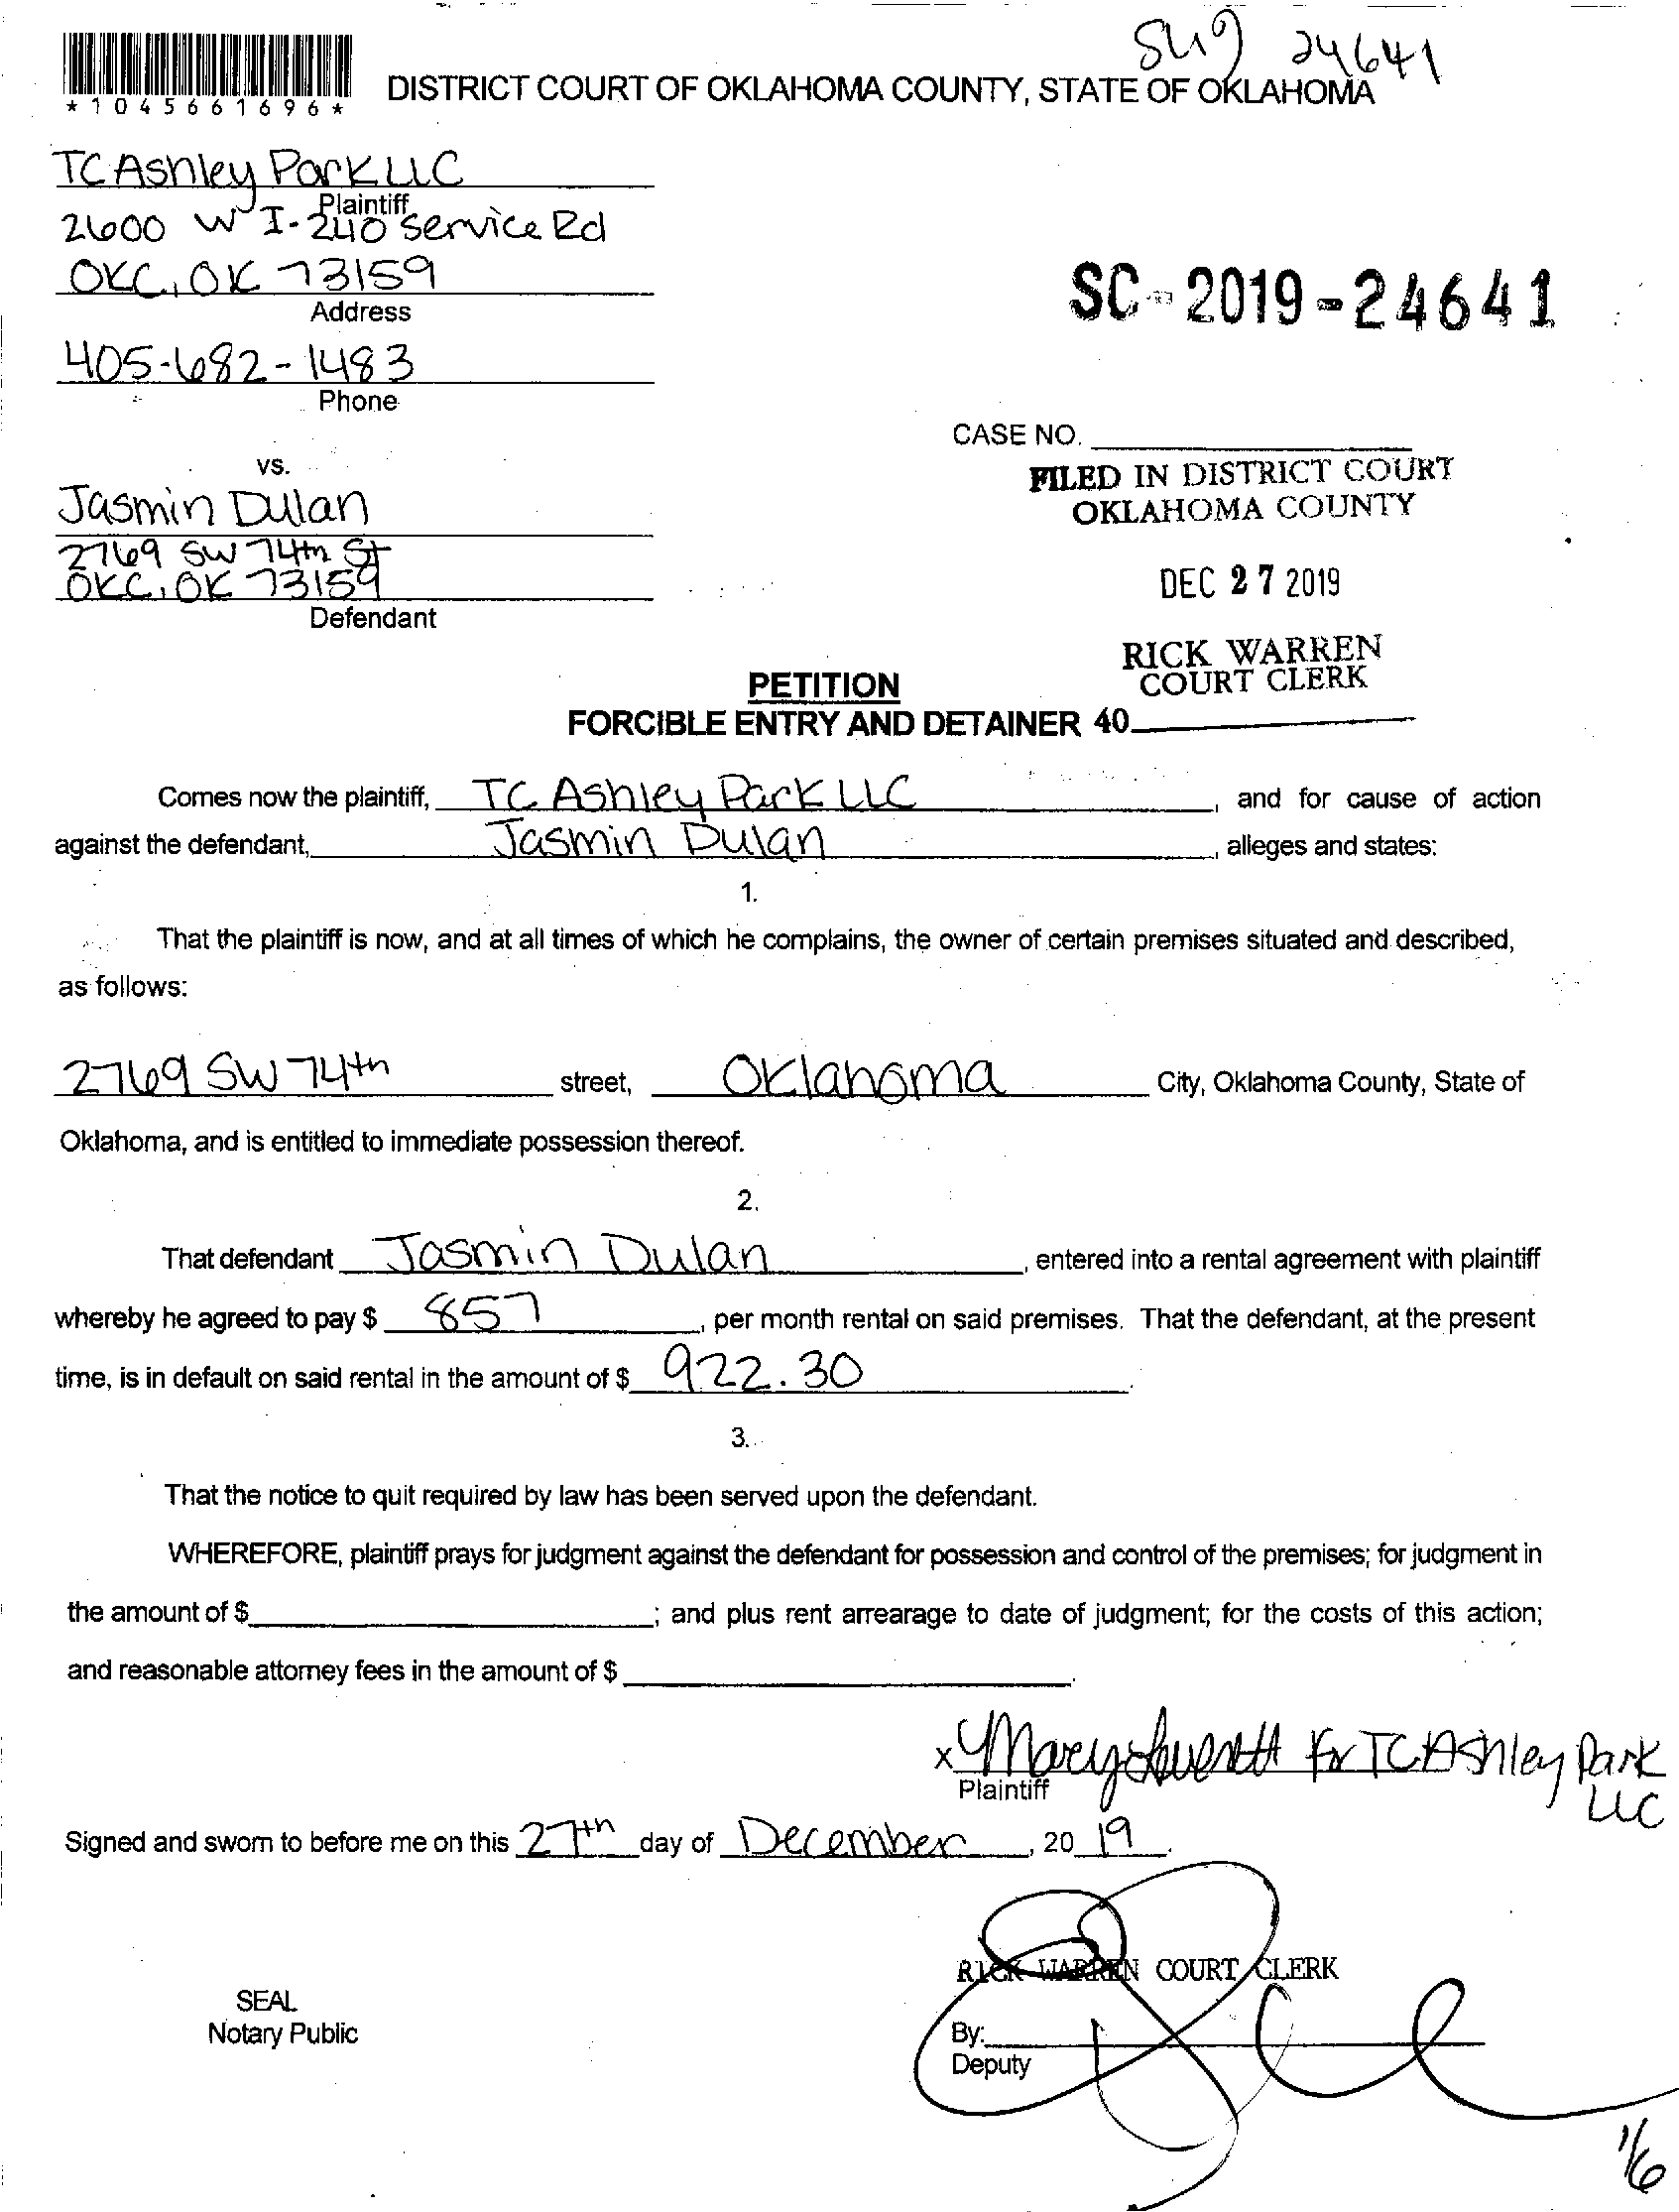 24641
*1045661696*
DISTRICT COURT OF OKLAHOMA COUNTY, STATE OF OKLAHOMA
TC Ashley Park LLC
Plaintiff
2600 W I-240 Service Rd
OKC, OK 73159
Address
SC-2019-24641
405-682-1483
Phone
CASE NO.
vs.
FILED IN DISTRICT COURT
OKLAHOMA COUNTY
Jasmin Dulan
2769 SW 74th St
OKC, OK 73159
Defendant
DEC 27 2019
RICK WARREN
COURT CLERK
PETITION
FORCIBLE ENTRY AND DETAINER 40
Comes now the plaintiff, TC Ashley Park LLC, and for cause of action
against the defendant, Jasmin Dulan, alleges and states:
1.
That the plaintiff is now, and at all times of which he complains, the owner of certain premises situated and described,
as follows:
2769 SW 74th street, Oklahoma City, Oklahoma County, State of
Oklahoma, and is entitled to immediate possession thereof.
2.
That defendant Jasmin Dulan, entered into a rental agreement with plaintiff
whereby he agreed to pay $ 857, per month rental on said premises. That the defendant, at the present
time, is in default on said rental in the amount of $ 922.30.
3.
That the notice to quit required by law has been served upon the defendant.
WHEREFORE, plaintiff prays for judgment against the defendant for possession and control of the premises; for judgment in
the amount of $; and plus rent arrearage to date of judgment; for the costs of this action;
and reasonable attorney fees in the amount of $.
x Mary for TC Ashley Park
LLC
Plaintiff
Signed and sworn to before me on this 27th day of December, 20 19.
RICK WARREN COURT CLERK
SEAL
Notary Public
By:
Deputy
1/6